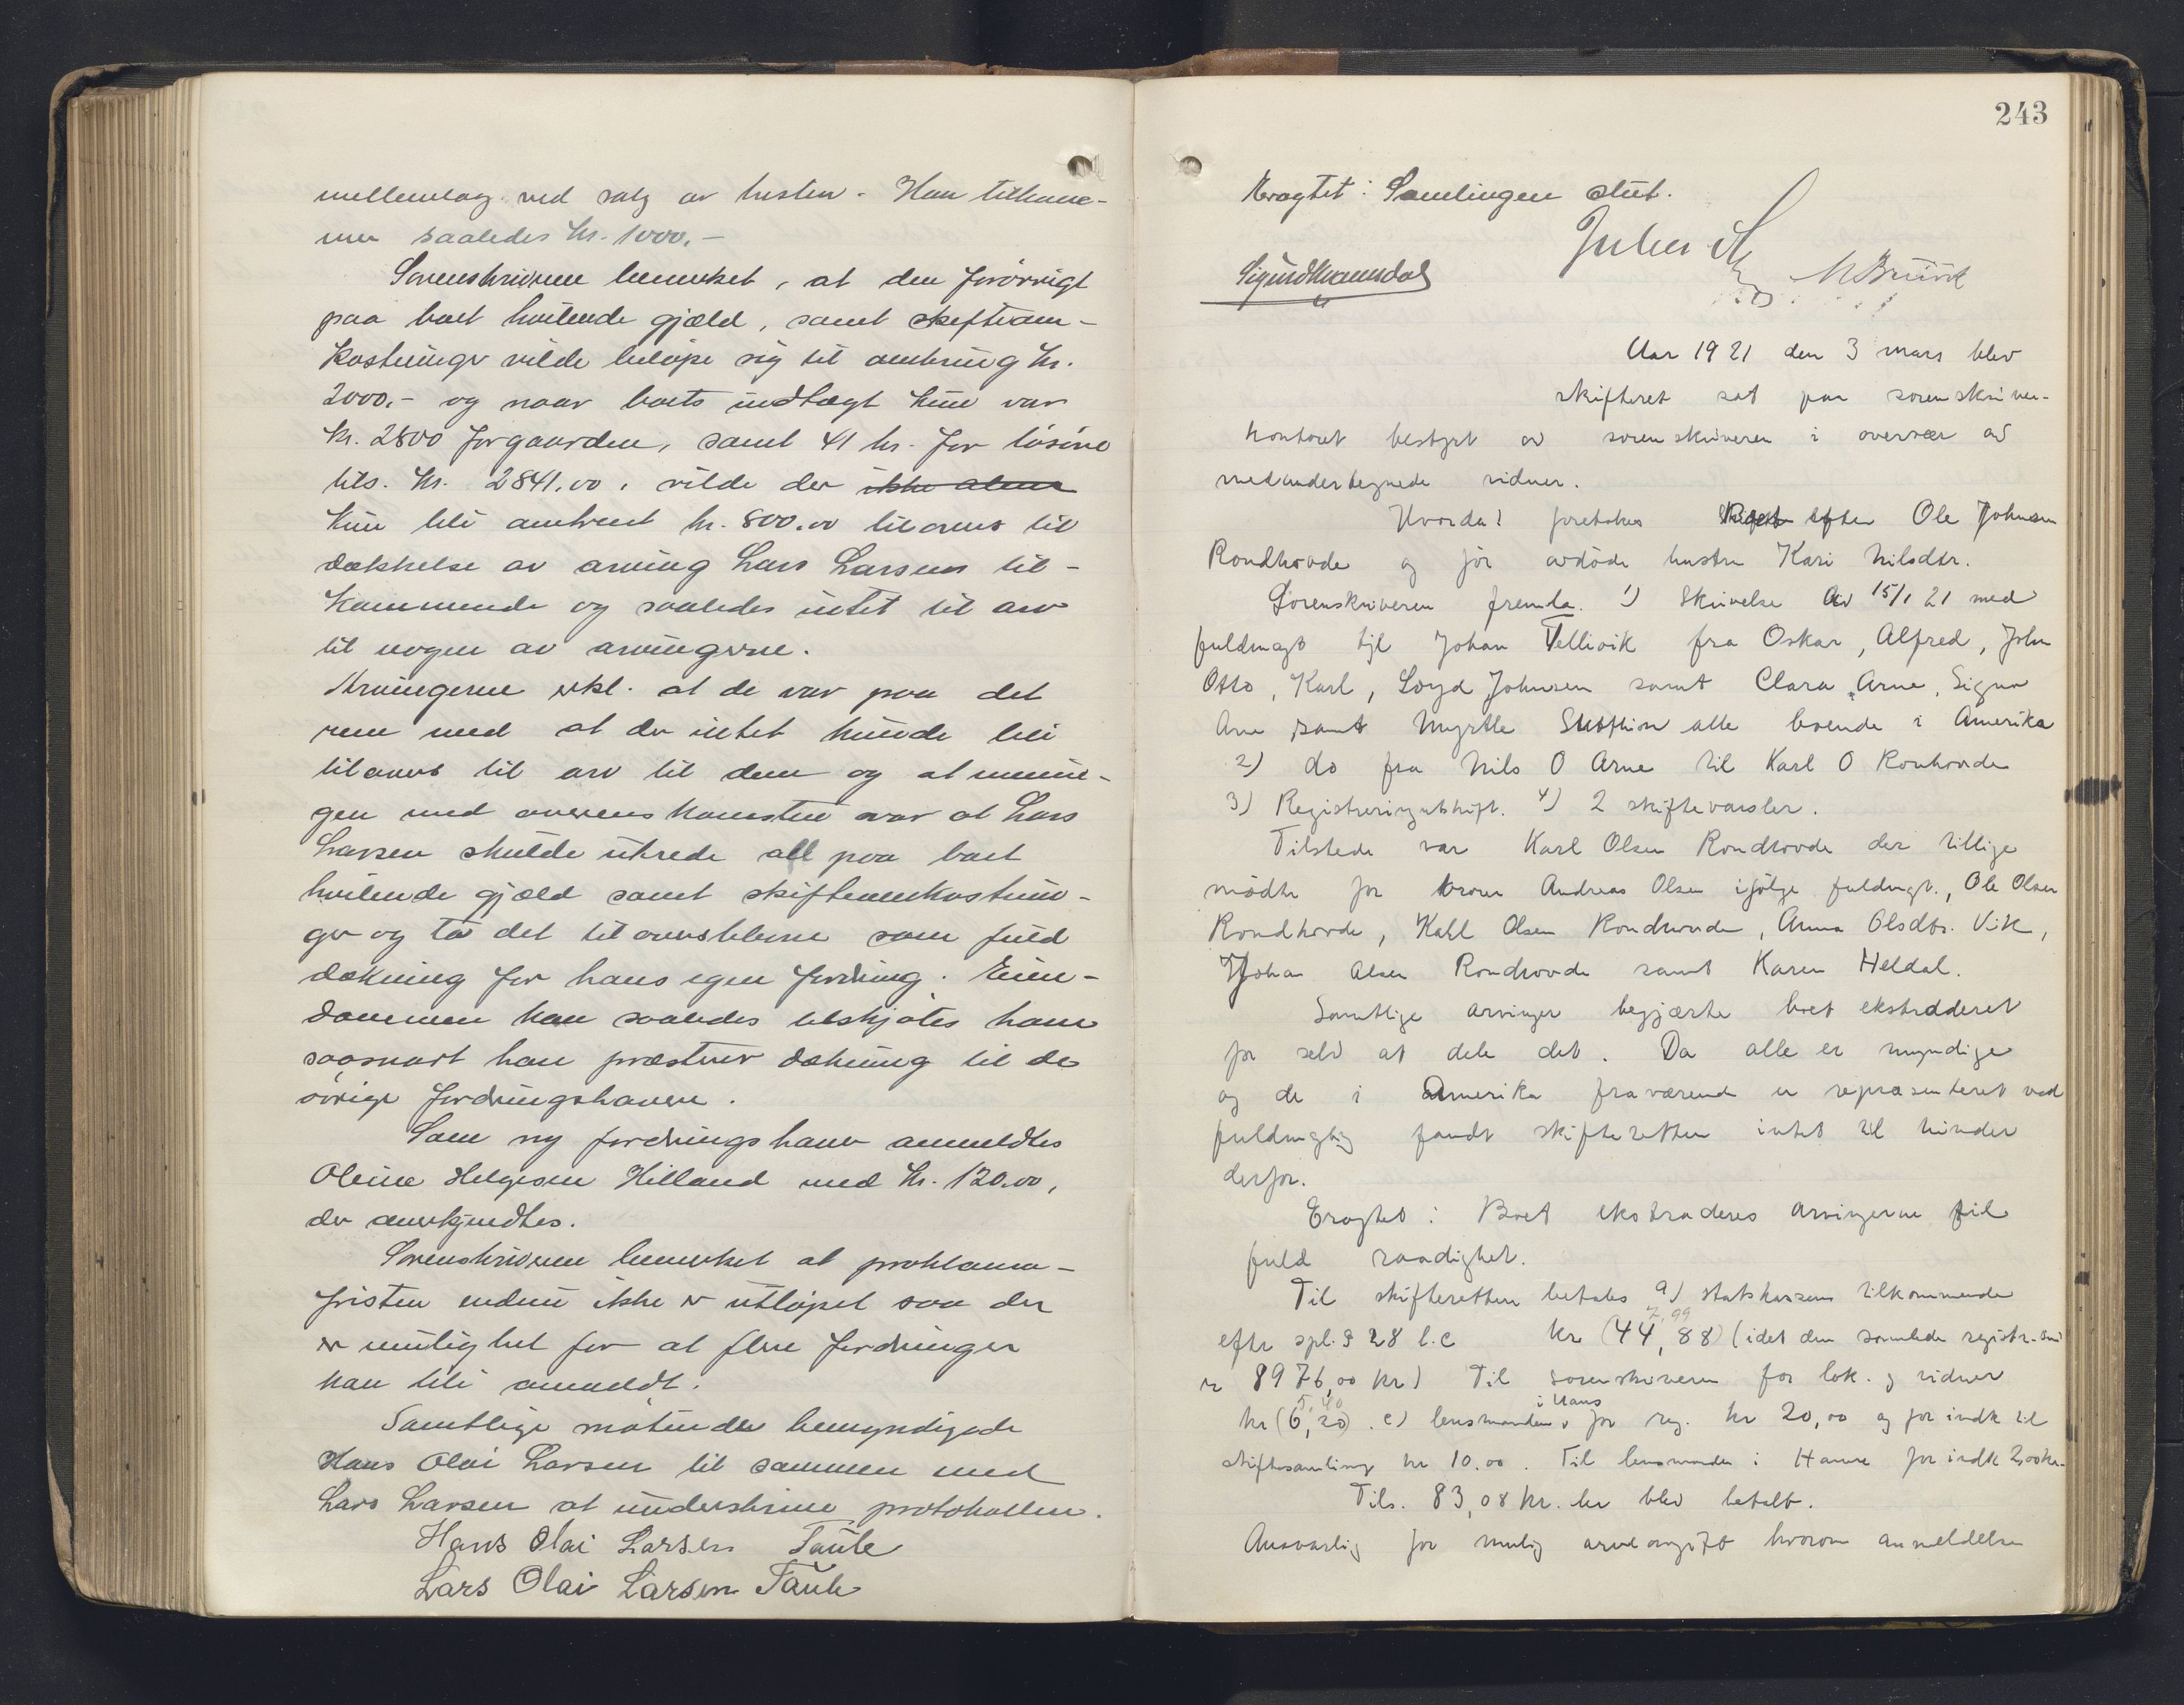 mellemlag ved salg av hesten. Han tilkom-
mer saaledes kr. 1000,-
Sorenskriveren bemerket, at den forövrigt
paa boet hvilende gjæld, samt skifteom-
kostninger vilde belöpe sig til omkring kr.
2000,- og naar boets indtægt kun var
kr. 2800 for gaarden, samt 41 kr. for lösöre
tils. kr. 2841,00, vilde der ikke
kun bli omtrent kr. 800,00 tilovers til
dækkelse av arving Lars Larsens til-
kommende og saaledes intet til arv
til nogen av arvingerne.
Arvingerne erkl. at de var paa det
rene med at der intet kunde bli
tilovers til arv til dem og at menin-
gen med overenskomsten var at Lars
Larsen skulde utrede all paa boet
hvilende gjæld samt skifteomkostnin-
ger og ta det tiloversblevne som fuld
dækning for hans egen fordring. Eien-
dommen kan saaledes utskjötes ham
saasnart han præsterer dækning til de
övrige fordringshavere.
Som ny fordringshaver anmeldtes
Oline Helgesen Hilland med kr. 120,00,
der anerkjendtes.
Sorenskriveren bemerket at proklama-
fristen endnu ikke er utlöpet saa der
er mulighet for at flere fordringer
kan bli anmeldt.
Samtlige mötende bemyndigede
Hans Olai Larsen til sammen med
Lars Larsen at underskrive protokollen.
Hans Olai Larsen Taule
Lars Olai Larsen Taule
243
Eragtet: Samlingen slut.
Sigurd Kvamsdal
M Bruvik
Aar 1921 den 3 mars blev
skifteret sat paa sorenskriver-
kontoret bestyrt av sorenskriveren i overvær av
medundertegnede vidner.
Hvorda! foretokes Skifte efter Ole Johnsen
Rondhovde og för avdöde hustru Kari Nilsdtr.
Sorenskriveren fremla. 1) Skrivelse av 15/1 21 med
fuldmagt til Johan Tellevik fra Oskar, Alfred, John
Otto, Karl, Loyd Johnsen samt Clara Arne, Signe
Arne samt Myrtle alle boende i Amerika
2) do fra Nils O Arne til Karl O Ronhovde
3) Registreringsutskrift. 4) 2 skiftevarsler.
Tilstede var Karl Olsen Rondhovde der tillige
mödte for broren Andreas Olsen ifölge fuldmgt., Ole Olsen
Rondhovde, Karl Olsen Rondhovde, Anna Olsdtr. Vik,
Johan Olsen Rondhovde samt Karen Heldal.
Samtlige arvinger begjærte boet ekstraderet
for selv at dele det. Da alle er myndige
og de i Amerika fraværende er repræsenteret ved
fuldmægtig fandt skifteretten intet til hinder
derfor.
Eragtet: Boet ekstraderes arvingerne til
fuld raadighet.
Til skifteretten betales a) statskassens tilkommende
7,99
efter spl. § 28 l.c kr (44,88) (idet den samlede registr.sum
er 8976,00 kr) Til sorenskriveren for lok. og vidner
5,40 i Haus
kr (6,20). c) lensmanden for reg. kr 20,00 og for indk til
skiftesamling kr 10.00. Til lensmanden i Hamre for indk 2,00kr.
Tils. 83,08 kr. der blev betalt.
Ansvarlig for mulig arveavgift hvorom anmeldelse